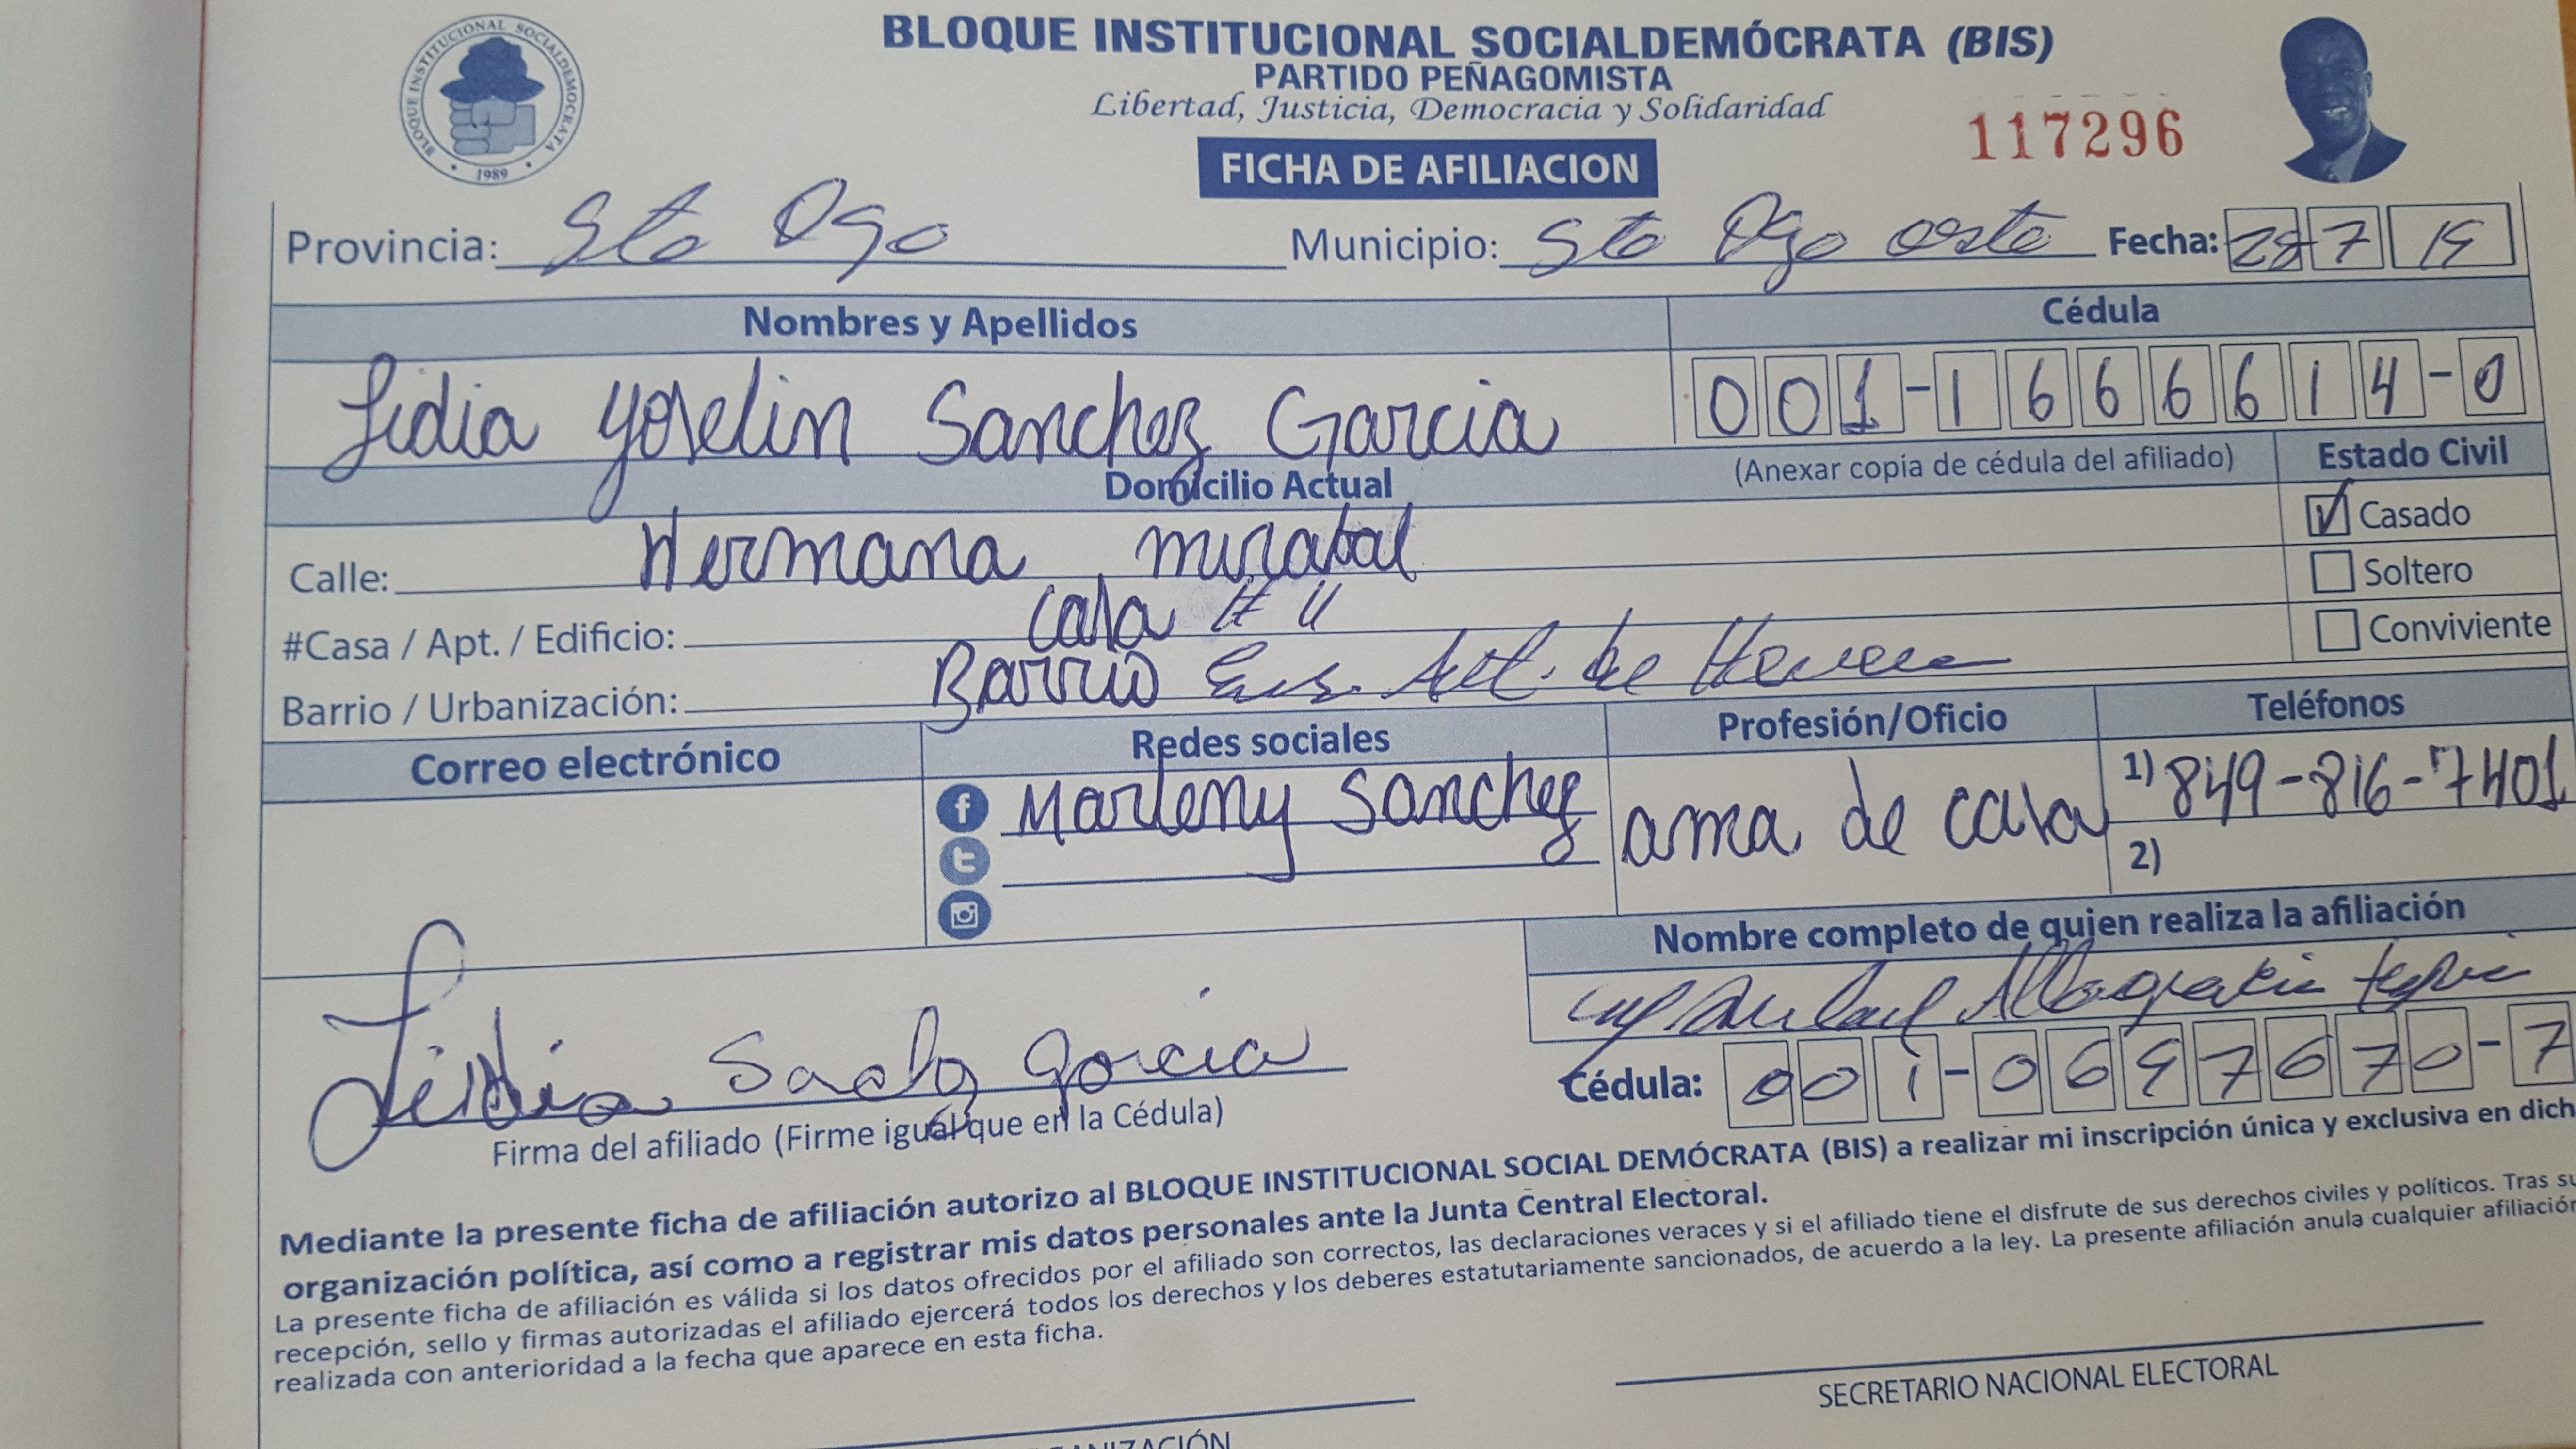 BLOQUE INSTITUCIONAL SOCIALDEMÓCRATA (BIS)
PARTIDO PEÑAGOMISTA
Libertad, Justicia, Democracia y Solidaridad
BLOQUE INSTITUCIONAL SOCIALDEMOCRATA
1989
117296
FICHA DE AFILIACION
Provincia: Sto Dgo Municipio: Sto Dgo oeste Fecha: 28 7 19
Nombres y Apellidos Cédula
Lidia Yoselin Sanchez Garcia 001-1666614-0
(Anexar copia de cédula del afiliado) Estado Civil
Domicilio Actual
Casado
Calle: Hermana mirabal
Soltero
#Casa / Apt. / Edificio: casa # 11
Conviviente
Barrio / Urbanización: Barrio de Herrera
Correo electrónico Redes sociales Profesión/Oficio Teléfonos
Marleny Sanchez ama de casa 1) 849-816-7401
2)
Nombre completo de quien realiza la afiliación
Altagracia
Cédula: 001-0697670-7
Lidia Garcia
Firma del afiliado (Firme igual que en la Cédula)
Mediante la presente ficha de afiliación autorizo al BLOQUE INSTITUCIONAL SOCIAL DEMÓCRATA (BIS) a realizar mi inscripción única y exclusiva en dich
organización política, así como a registrar mis datos personales ante la Junta Central Electoral.
La presente ficha de afiliación es válida si los datos ofrecidos por el afiliado son correctos, las declaraciones veraces y si el afiliado tiene el disfrute de sus derechos civiles y políticos. Tras su
recepción, sello y firmas autorizadas el afiliado ejercerá todos los derechos y los deberes estatutariamente sancionados, de acuerdo a la ley. La presente afiliación anula cualquier afiliación
realizada con anterioridad a la fecha que aparece en esta ficha.
SECRETARIO NACIONAL ELECTORAL